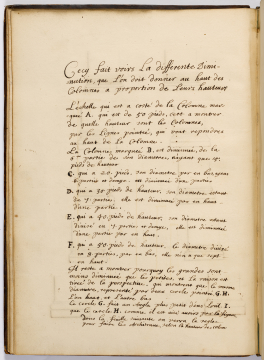 Cecy fait voire La differente Dimi
nution, que l'on doit donner au haut des
Colonnes a proportion de Leurs hauteurs
L'échelle qui est a costé de la Colonne mar
quée A. qui est de 50 pieds, sert a montrer
de quelle hauteur sont les Colonnes,
par les Lignes pointées, qui vont respondre
au haut de la Colonne.
La Colonne marquée B. est diminuée, de la
6e partie de son diametre, n'ayant que 15
pieds de hauteur
C. qui a 20. pieds, son diametre, par en bas, ayant
6 parties et diminuée d'une partie
D. qui a 30 pieds de hauteur, son diametre, estant
de 7 parties, elle est diminuée par en haut
d'une partie.
E. qui a 40 pieds de hauteur, son diametre estant
divisé en 7 parties et elle est diminuée
d'une partie par en haut.
F. qui a 50 pieds de hauteur, le diametre divisé
en 8 parties, par en bas, elle n'en a que sept
en haut
Il reste a montrer pourquoy les grandes sont
moins diminuées que les petites, et la raison est
tirée de la perspective, qui montre que le mesme
diametre, representé par deux cercle pointés G. H.
l'un haut, et l'autre bas
Le cercle G. fait un angle plus petit dans l'oeil I.
que le cercle H. comme, il est aisé